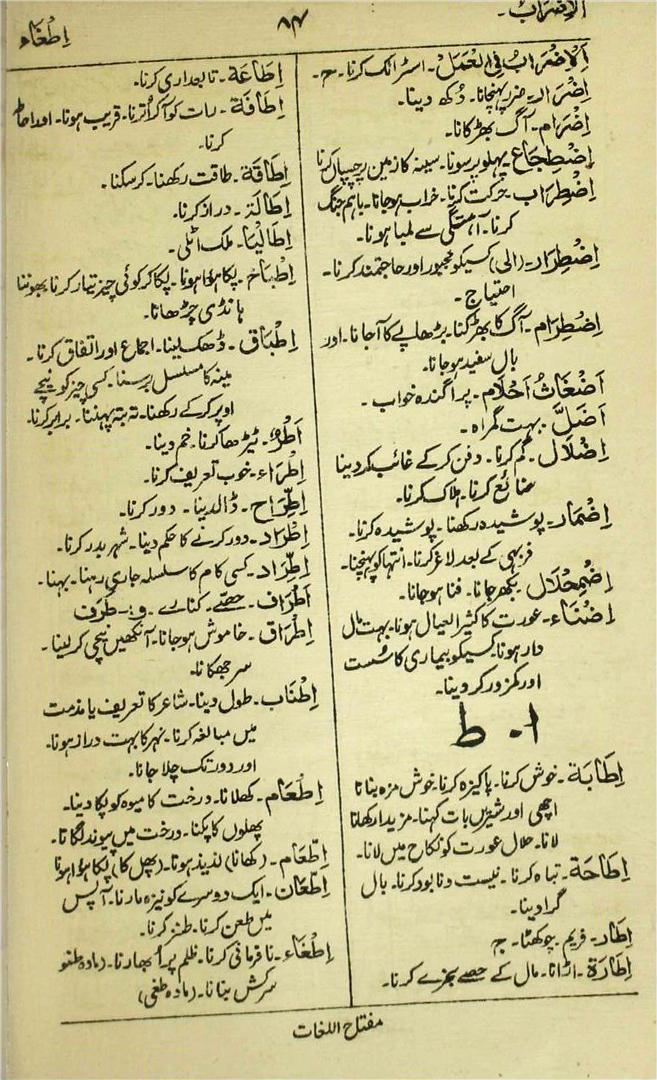 الاضراب۔
۸۴
اِطغَاء
اَلْاِضْرَابُ فِی الْعَمَل۔ اسٹرائک کرنا۔ ج۔
اِضْرَار۔ ضرر پہنچانا۔ دُکھ دینا۔
اِضْرَام۔ آگ بھڑکانا۔
اِضْطِجَاع۔ پہلو پر سونا۔ سینہ کا زمین پر چسپاں کرنا
اِضْطِرَاب۔ حرکت کرنا۔ خراب ہوجانا۔ باہم جنگ
کرنا۔ آہستگی سے لمبا ہونا۔
اِضْطِرَار۔ (الی) کسیکو مجبور اور حاجتمند کرنا۔
احتیاج۔
اِضْطِرَام۔ آگ کا بھڑکنا۔ بڑھاپے کا آجانا۔ اور
بال سفید ہوجانا۔
اَضْغَاثُ اَحْلَام۔ پراگندہ خواب۔
اَضَلّ۔ بہت گمراہ۔
اِضْلَال۔ گم کرنا۔ دفن کرکے غائب کردینا
ضائع کرنا۔ ہلاک کرنا۔
اِضْمَار۔ پوشیدہ رکھنا۔ پوشیدہ کرنا۔
فربہی کے بعد لاغر کرنا۔ انتہا کو پہنچنا۔
اِضْمِحْلَال۔ بکھر جانا۔ فنا ہوجانا۔
اِضْنَاء۔ عورت کا کثیر العیال ہونا۔ بہت مال
دار ہونا۔ کسیکو بیماری کا سُست
اور کمزور کردینا۔
ا۔ ط
اِطَابَة۔ خوش کرنا۔ پاکیزہ کرنا۔ خوش مزہ بنانا
اچھی اور شیریں بات کہنا۔ مزیدار کھانا
لانا۔ حلال عورت کو نکاح میں لانا۔
اِطَاحَة۔ تباہ کرنا۔ نیست و نابود کرنا۔ بال
گرا دینا۔
اِطَار۔ فریم۔ چوکھٹا۔ ج
اِطَارَة۔ اڑانا۔ مال کے حصے بخرے کرنا۔
اِطَاعَة۔ تابعداری کرنا۔
اِطَافَة۔ رات کو آکر اُترنا۔ قریب ہونا۔ اور احاطہ
کرنا۔
اِطَاقَة۔ طاقت رکھنا۔ کرسکنا۔
اِطَالَة۔ دراز کرنا۔
اِطَالِیَا۔ ملک اٹلی۔
اِطِّبَاخ۔ پکا ہوا ہونا۔ پکا کر کوئی چیز تیار کرنا۔ بھوننا
ہانڈی چڑھانا۔
اِطْبَاق۔ ڈھک لینا۔ اجماع اور اتفاق کرنا۔
مینہ کا مسلسل برسنا۔ کسی چیز کو نیچے
اوپر کرکے رکھنا۔ تہ بتہ پہننا۔ برابر کرنا۔
اَطْرُ۔ ٹیڑھا کرنا۔ خم دینا۔
اِطْرَاء۔ خوب تعریف کرنا۔
اِطِّرَاح۔ ڈالدینا۔ دور کرنا۔
اِطْرَاد۔ دور کرنے کا حکم دینا۔ شہر بدر کرنا۔
اِطِّرَاد۔ کسی کام کا سلسلہ جاری رہنا۔ بہنا۔
اَطْرَاف۔ حصّے۔ کنارے۔ و:۔ طَرَف
اِطْرَاق۔ خاموش ہوجانا۔ آنکھیں نیچی کرلینا۔
سر جھکانا۔
اِطْنَاب۔ طول دینا۔ شاعر کا تعریف یا مذمت
میں مبالغہ کرنا۔ نہر کا بہت دراز ہونا۔
اور دور تک چلا جانا۔
اِطْعَام۔ کھلانا۔ درخت کا میوہ کو پکا دینا۔
پھلوں کا پکنا۔ درخت میں پیوند لگانا۔
اِطِّعَام۔ (کھانا) لذیذ ہونا۔ (پھل کا) پکا ہوا ہونا
اِطِّعَان۔ ایک دوسرے کو نیزہ مارنا۔ آپس
میں طعن کرنا۔ طنز کرنا۔
اِطْغَاء۔ نافرمانی کرنا۔ ظلم پر اُبھارنا۔ (مادہ طغو
سرکش بنانا۔ (مادہ طغی)
مفتاح اللغات